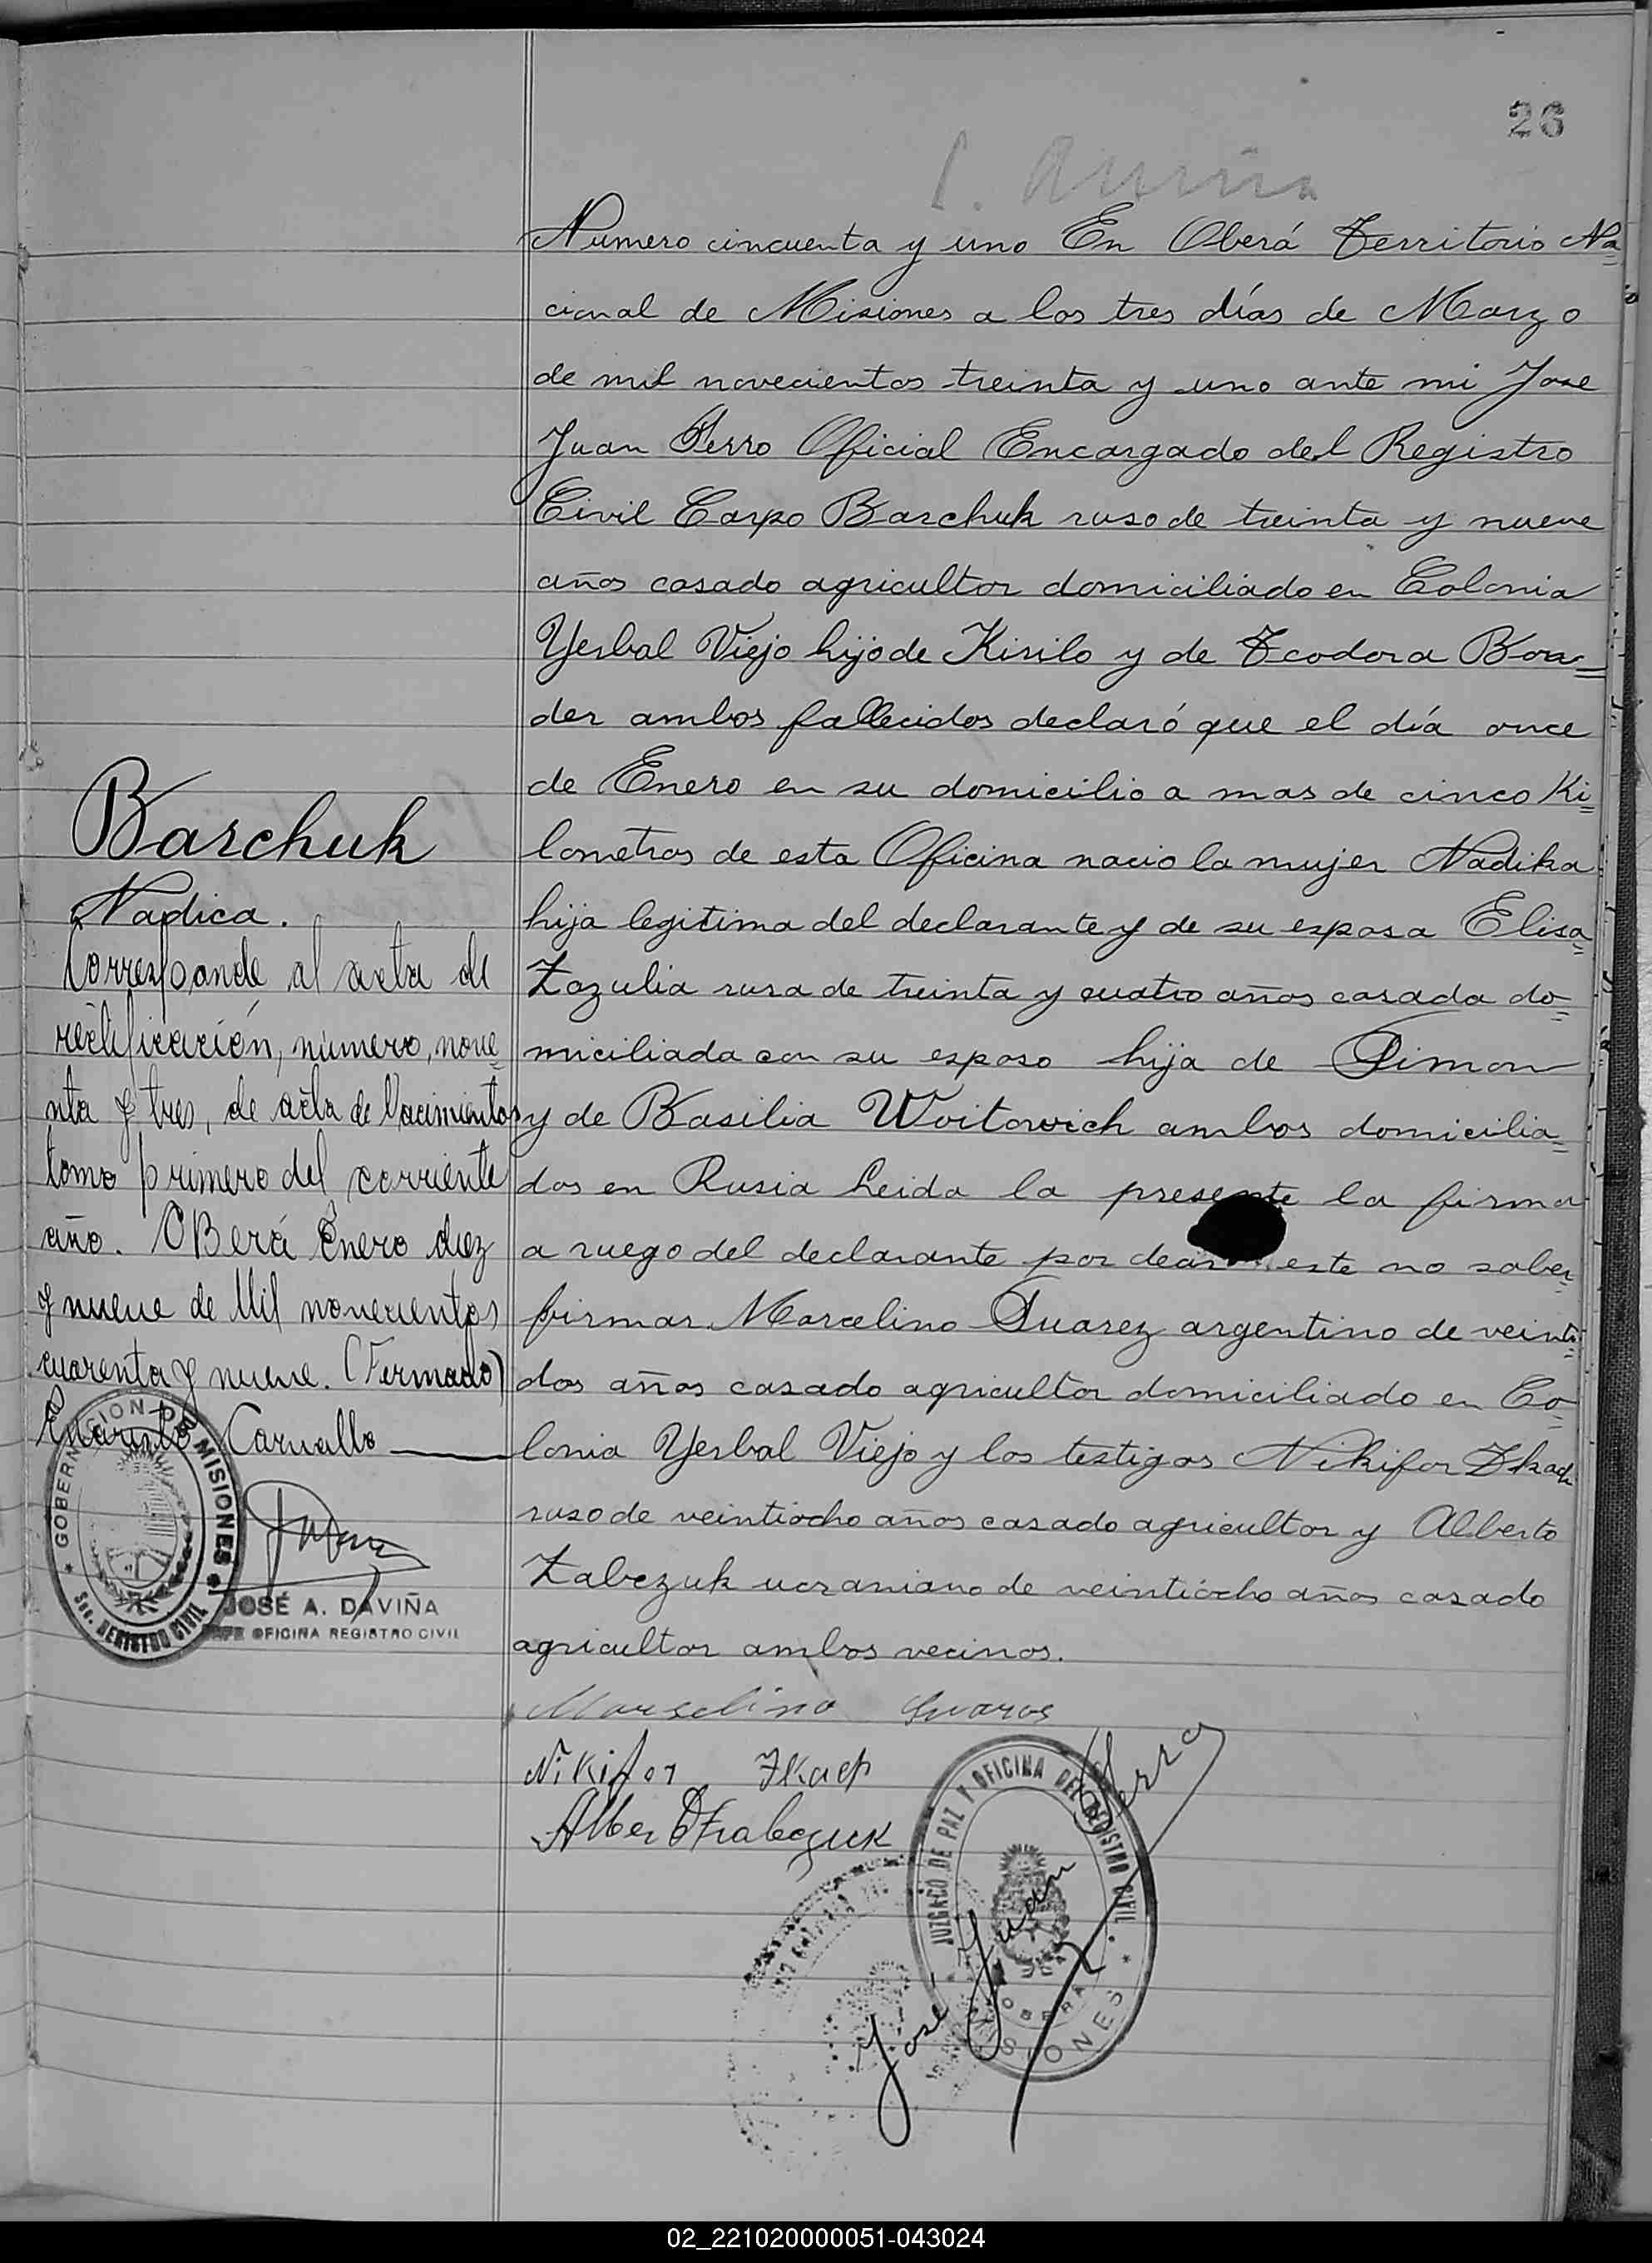 26
Numero cincuenta y uno En Oberá Territorio Na=
cional de Misiones a los tres días de Marzo
de mil novecientos treinta y uno ante mi Jose
Juan Serro Oficial Encargado del Registro
Civil Carpo Barchuk ruso de treinta y nueve
años casado agricultor domiciliado en Colonia
Yerbal Viejo hijo de Kirilo y de Teodora Bon=
der ambos fallecidos declaró que el día once
de Enero en su domicilio a mas de cinco Ki=
lometros de esta Oficina nacio la mujer Nadika
hija legitima del declarante y de su esposa Elisa
Zazulia rusa de treinta y cuatro años casada do=
miciliada con su esposo hija de Simon
y de Basilia Woitowich ambos domicilia=
dos en Rusia Leida la presente la firma
a ruego del declarante por decir este no saber
firmar Marcelino Suarez argentino de veinti=
dos años casado agricultor domiciliado en Co=
lonia Yerbal Viejo y los testigos Nikifor Tkach
ruso de veintiocho años casado agricultor y Alberto
Zabczuk ucraniano de veintiocho años casado
agricultor ambos vecinos.
Barchuk
Nadica.
Corresponde al acta de
rectificación, número, nove=
nta y tres, de acta de Nacimientos
tomo primero del corriente
año. OBerá Enero diez
y nueve de Mil novecientos
cuarenta y nueve. (Fermado)
Carvallo
GOBERNACION DE MISIONES
Sec. REGISTRO CIVIL
JOSÉ A. DAVIÑA
JEFE OFICINA REGISTRO CIVIL
Marselino Suares
Nikifor Tkach
JUZGADO DE PAZ Y OFICINA DEL REGISTRO CIVIL
OBERÁ
MISIONES
José Juan Serro
02_221020000051-043024